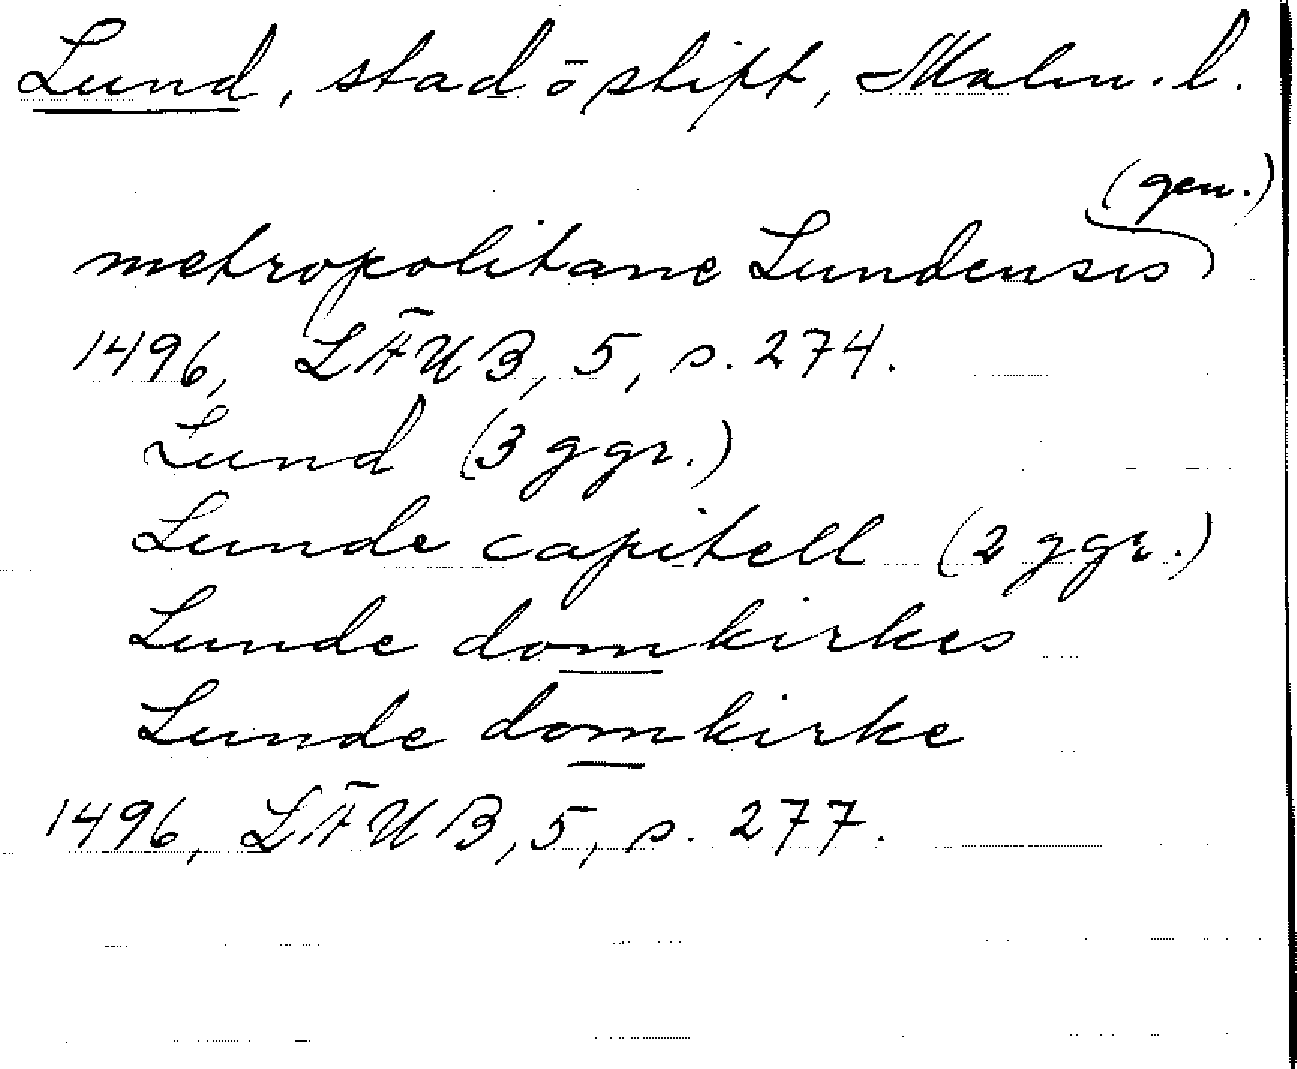 Lund, stad o stift, Malm. l.
(gen.)
metropolitane Lundensis
1496, LÄUB, 5, s. 274.
Lund (3 ggr.)
Lunde capitell (2 ggr.)
Lunde domkirkes
Lunde domkirke
1496, LÄUB, 5, s. 277.